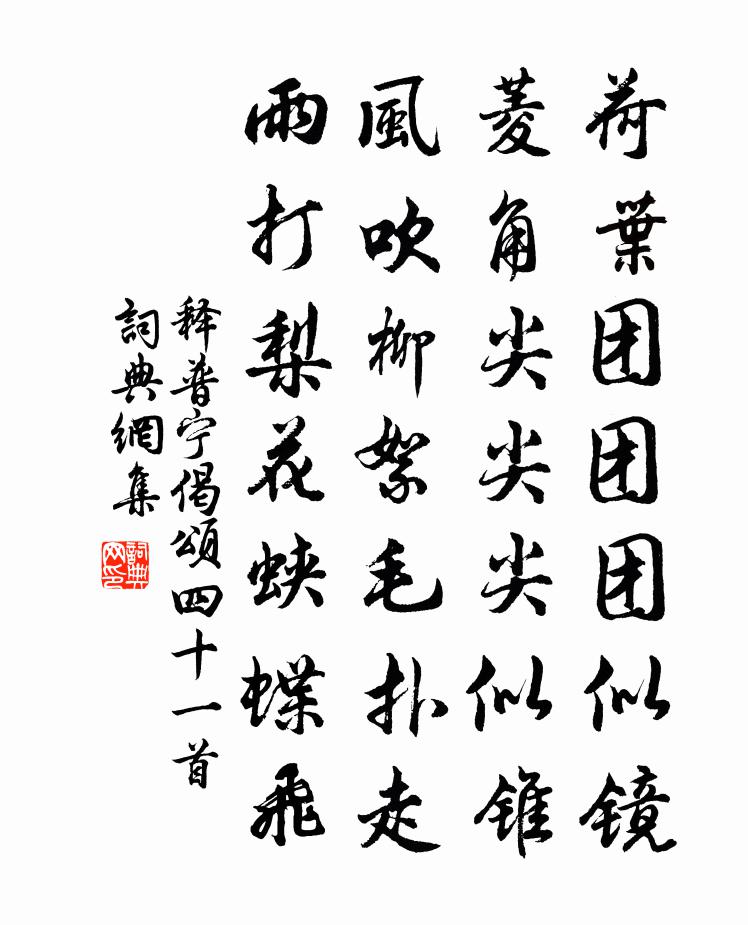 荷葉团团团似镜
菱角尖尖尖似锥
風吹柳絮毛扑走
雨打梨花蛱蝶飛
释普宁偈頌四十一首
詞典網集
詞典网印